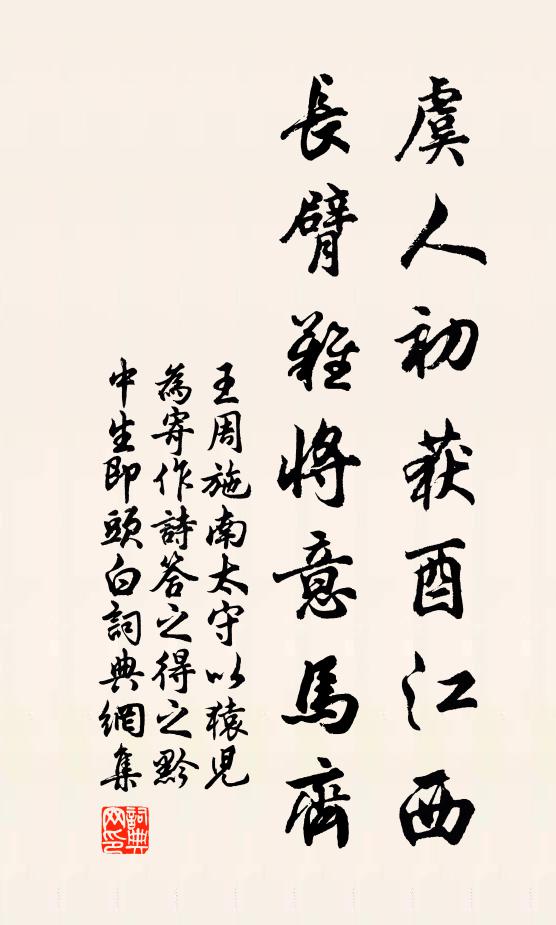 虞人初获酉江西
長臂難將意馬齊
王周施南太守以猿児
為寄作詩答之得之黔
中生即頭白詞典網集
詞典網印